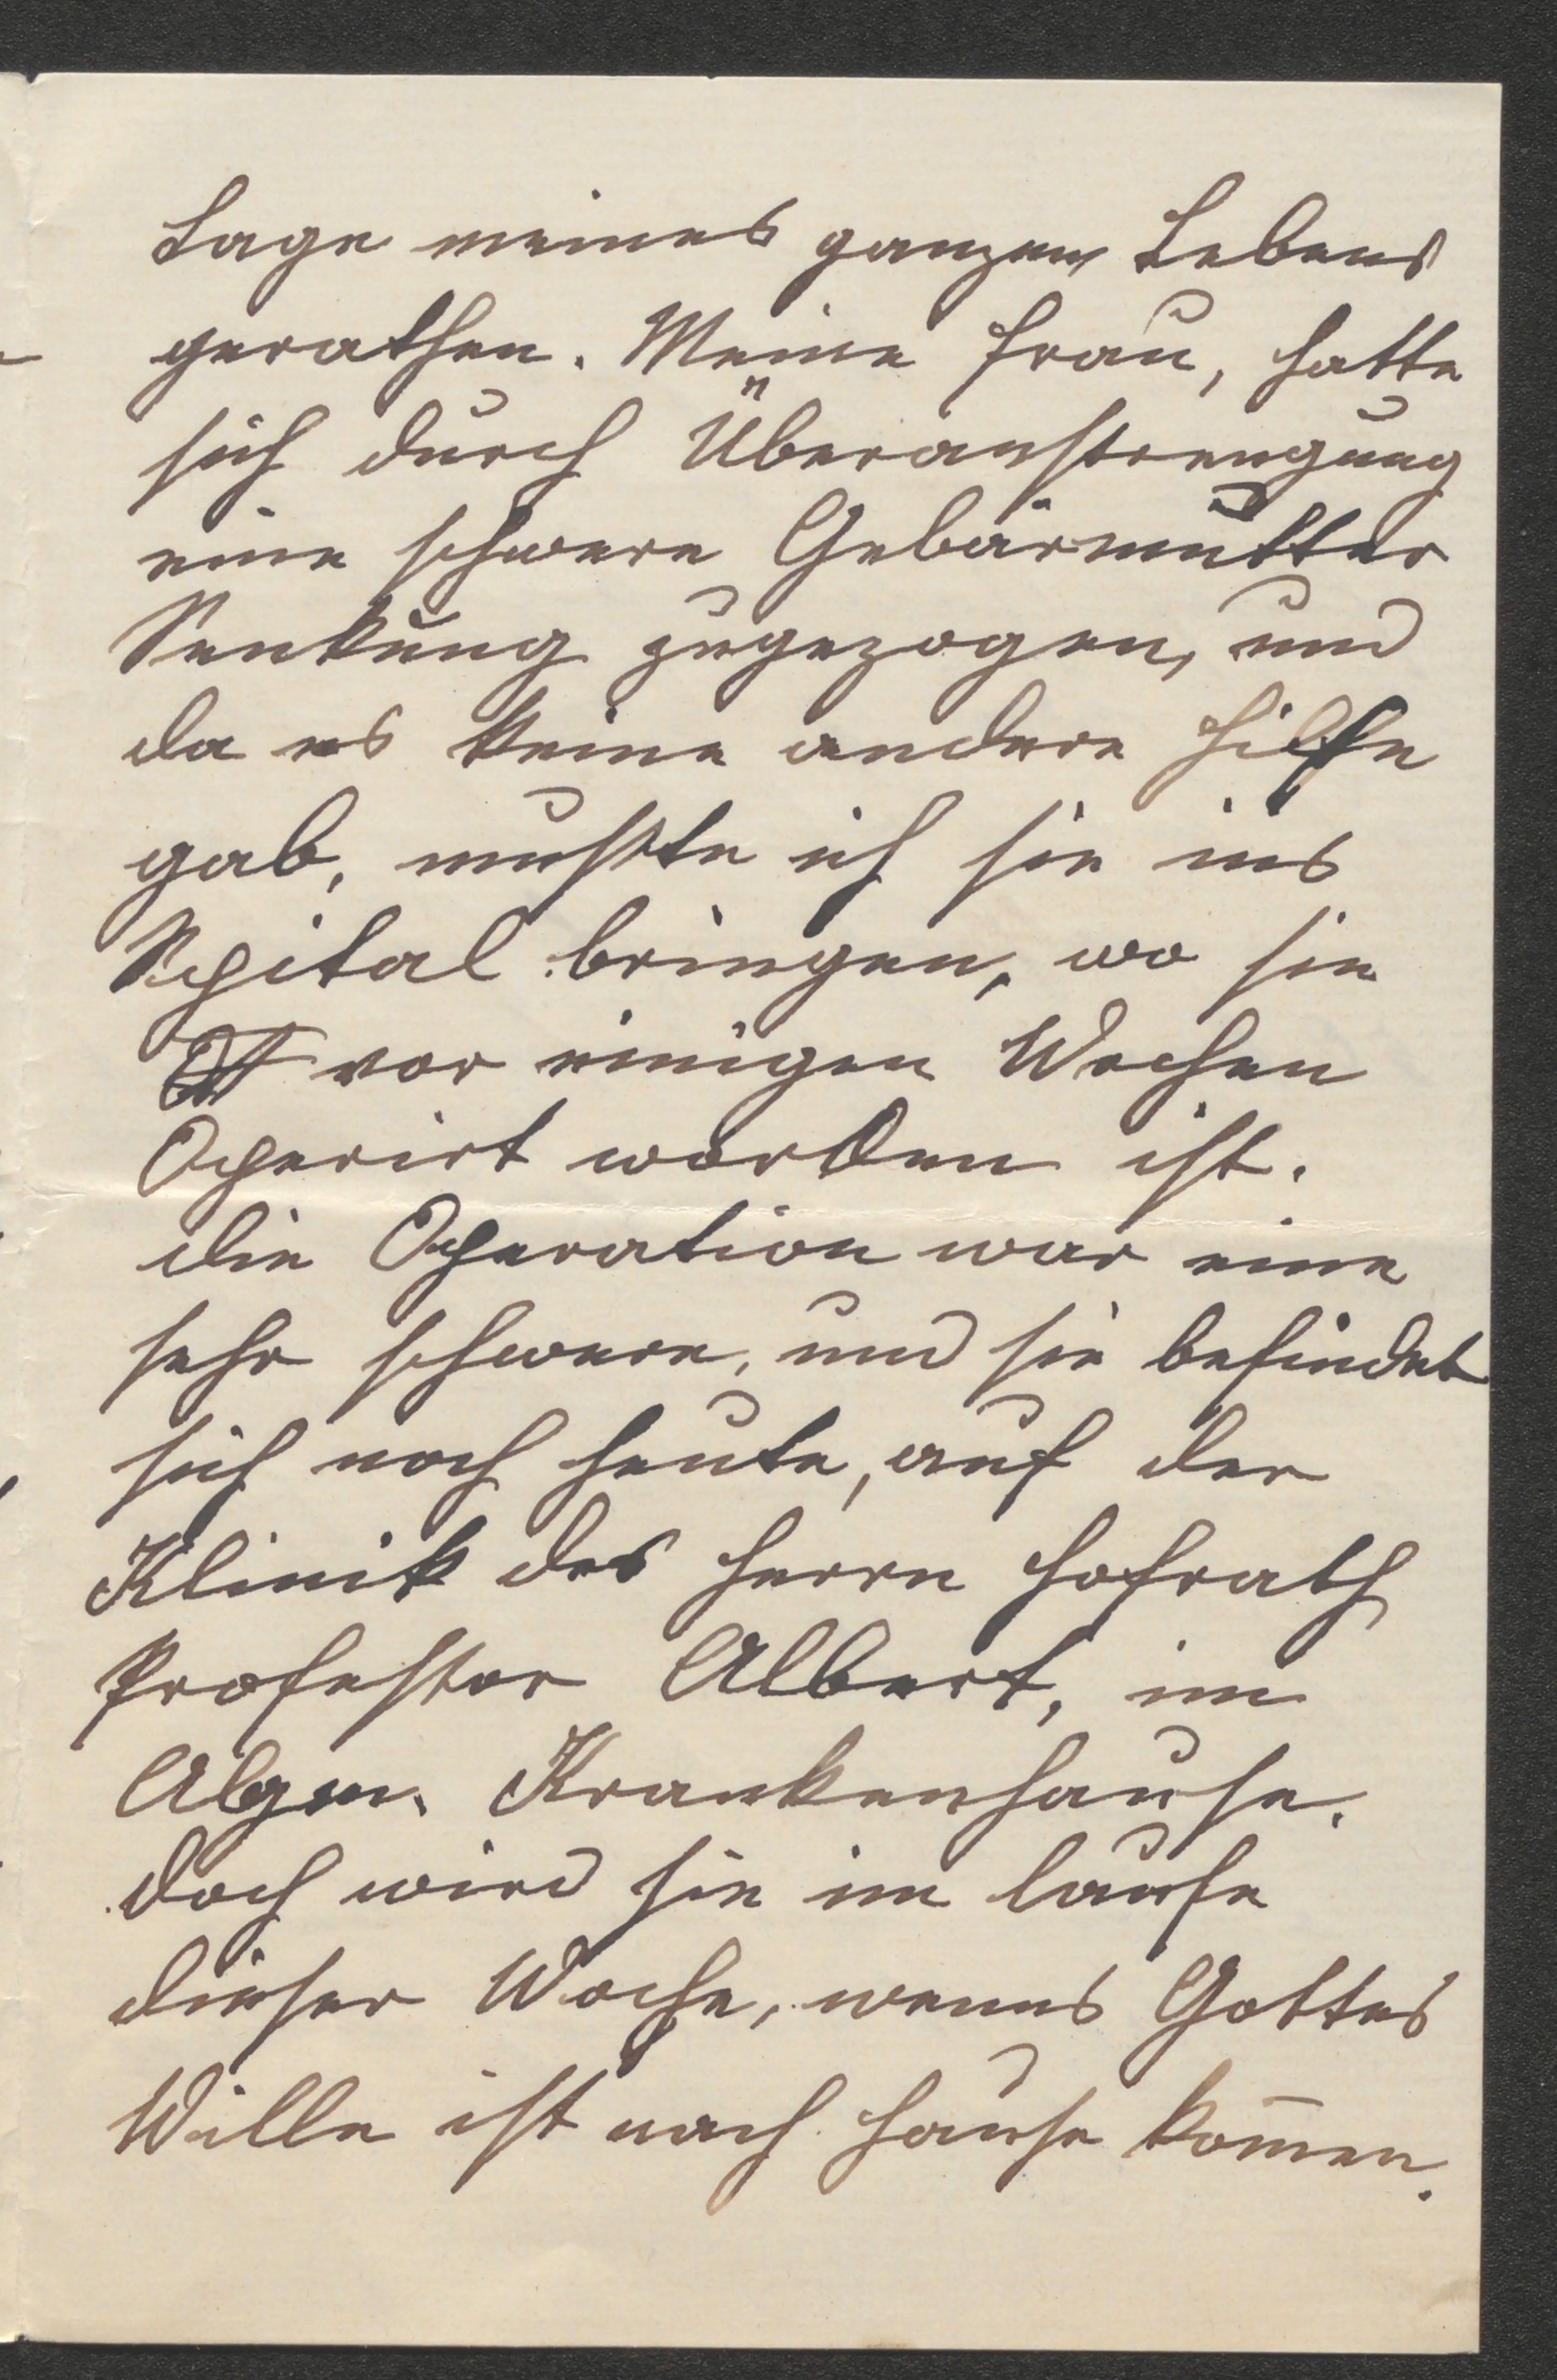 Lage meines ganzen Lebens
gerathen. Meine Frau, hatte
sich durch Überanstrengung
eine schwere Gebärmutter
Senkung zugezogen, und
da es keine andere Hilfe
gab, mußte ich sie ins
Spital bringen, wo sie
vor einigen Wochen
Operirt worden ist.
die Operation war eine
sehr schwere, und sie befindet
sich noch heute, auf der
Klinik des Herrn Hofrath
Professor Albert, im
Algem. Krankenhause.
doch wird sie im laufe
dieser Woche, wenns Gottes
Wille ist nach Hause kom̄en.